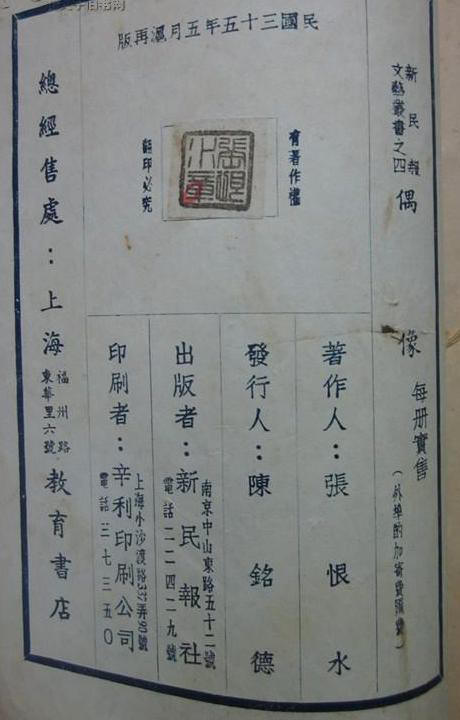 民國三十五年五月滬再版
新民報
文藝叢書之四
偶像
每册實售
（外埠酌加寄費匯費）
有著作權
張恨水章
翻印必究
著作人：張恨水
發行人：陳銘德
出版者：新民報社
南京中山東路五十二號
電話二二四二九號
印刷者：辛利印刷公司
上海小沙渡路337弄90號
電話三七三五〇
總經售處：上海
福州路
東華里六號
教育書店